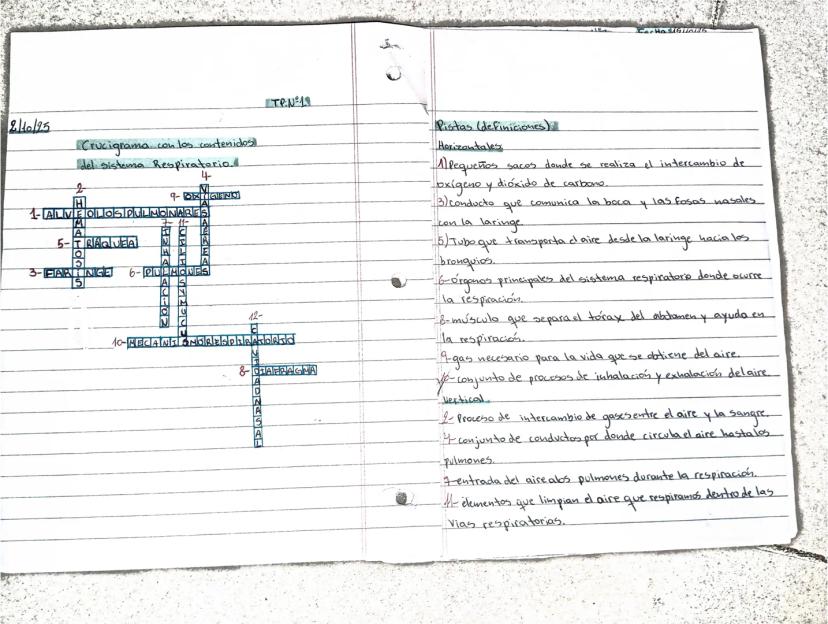 Fecha
TP.Nº19
2/10/25
Crucigrama con los contenidos
del sistema Respiratorio.
4-
2-
9- OXIGENO
1- ALVEOLOSPULMONARES
7- 11-
5- TRAQUEA
3- FARINGE
6- PULMONES
HEMATOSIS
VIASAEREAS
INHALACION
CILIOSYMUCUS
12-
10- MECANISMORESPIRATORIO
8- DIAFRAGMA
CAVIDADNASAL
Pistas (definiciones)
Horizontales
1) Pequeños sacos donde se realiza el intercambio de
oxígeno y dióxido de carbono.
3) conducto que comunica la boca y las fosas nasales
con la laringe.
5) Tubo que transporta el aire desde la laringe hacia los
bronquios.
6- órganos principales del sistema respiratorio donde ocurre
la respiración.
8- músculo que separa el tórax del abdomen y ayuda en
la respiración.
9- gas necesario para la vida que se obtiene del aire.
10- conjunto de procesos de inhalación y exhalación del aire
Vertical.
2- Proceso de intercambio de gases entre el aire y la sangre.
4- conjunto de conductos por donde circula el aire hasta los
pulmones.
7- entrada del aire a los pulmones durante la respiración.
11- elementos que limpian el aire que respiramos dentro de las
vias respiratorias.